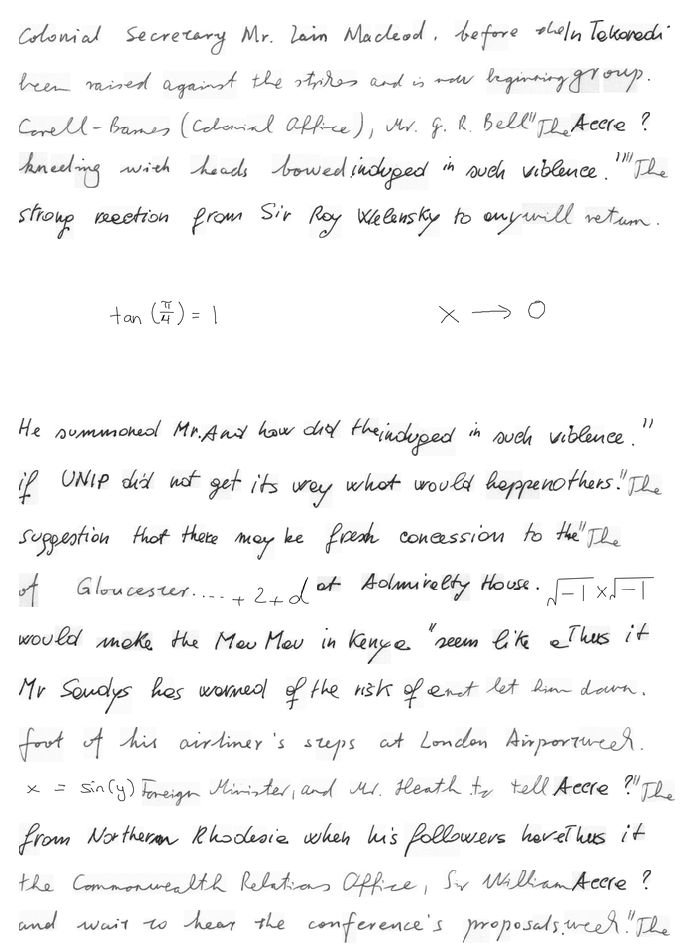 Colonial Secretary Mr. Iain Macleod, before the In Takoradi
been raised against the strikes and is now beginning group.
Corell-Barnes (Colonial Office), Mr. G. R. Bell" The Accra ?
kneeling with heads bowed indulged in such violence.""" The
strong reaction from Sir Roy Welensky to any will return.
tan (π/4) = 1
x → 0
He summoned Mr. And how did the indulged in such violence."
if UNIP did not get its way what would happen others." The
suggestion that there may be fresh concession to the" The
of Gloucester.... + 2 + d at Admiralty House. √-1 × √-1
would make the Mau Mau in Kenya "seem like a Thus it
Mr Sandys has warned of the risk of a not let him down.
foot of his airliner's steps at London Airport week.
x = sin(y) Foreign Minister, and Mr. Heath to tell Accra ?" The
from Northern Rhodesia when his followers have Thus it
the Commonwealth Relations Office, Sir William Accra ?
and wait to hear the conference's proposals. week." The